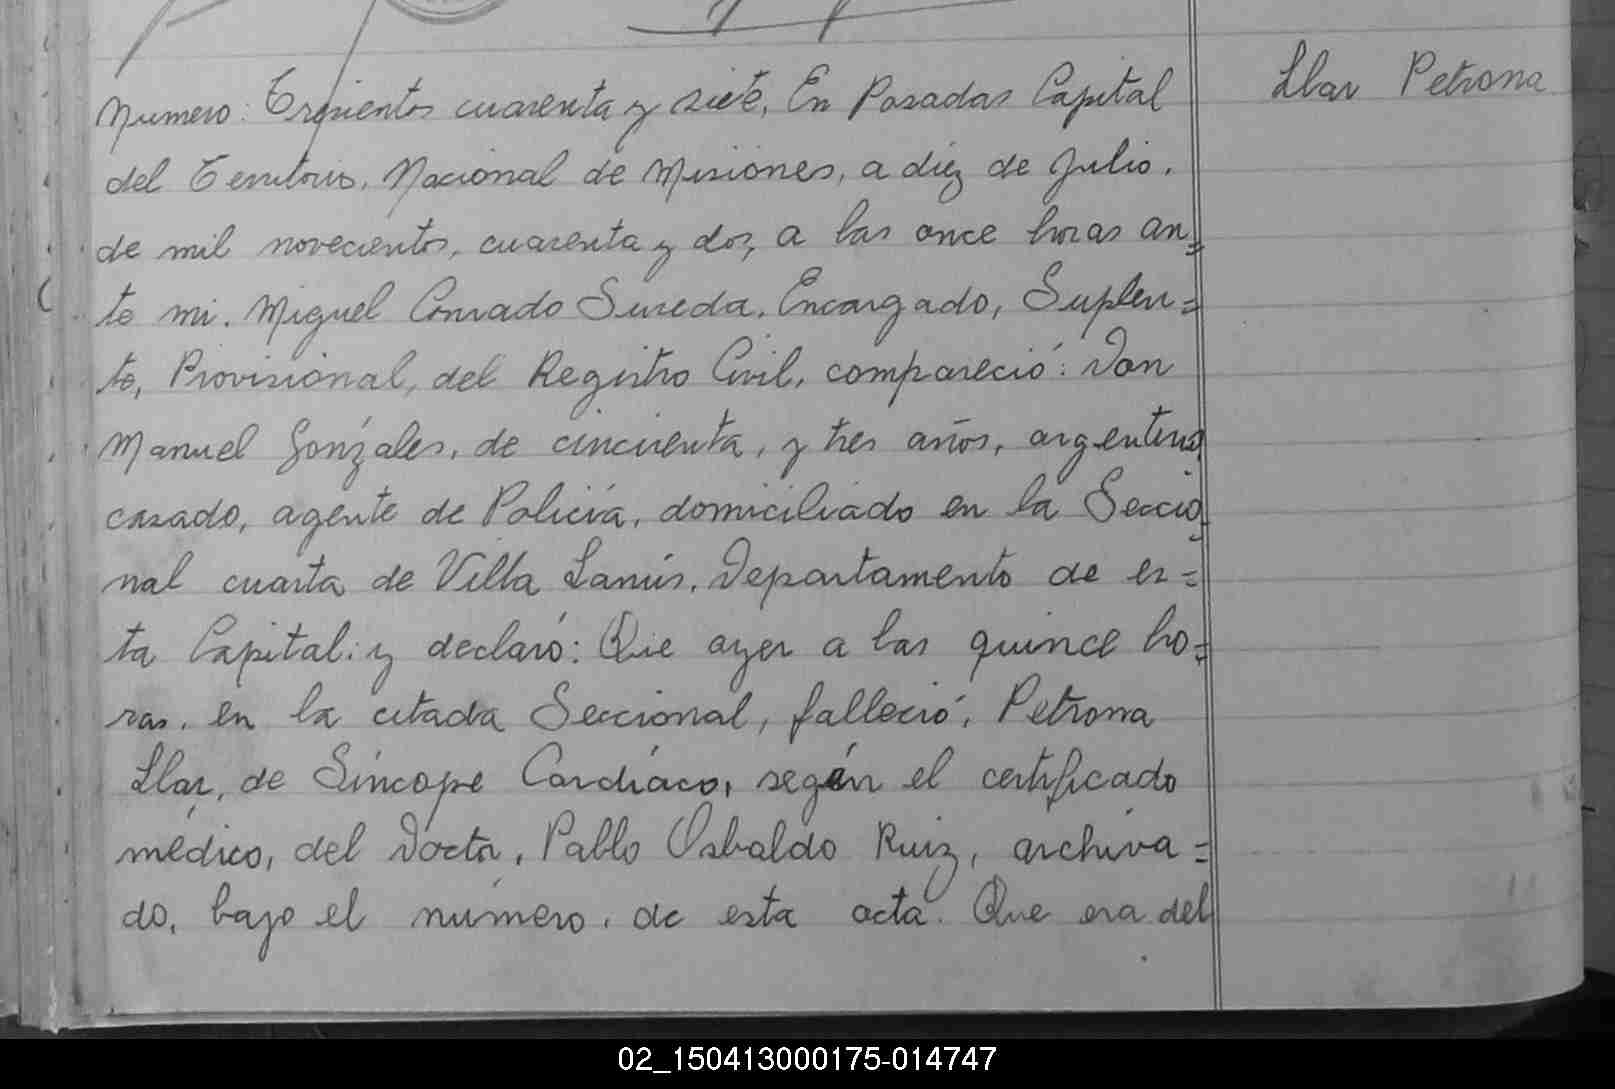 Llar Petrona
Numero: Trescientos cuarenta y siete, En Posadas Capital
del Territorio, Nacional de Misiones, a diez de Julio,
de mil novecientos, cuarenta y dos, a las once horas an=
te mi. Miguel Conrado Sureda, Encargado, Suplen=
te, Provisional, del Registro Civil, compareció: Don
Manuel Gonzáles, de cincuenta, y tres años, argentino,
casado, agente de Policía, domiciliado en la Seccio=
nal cuarta de Villa Lanús, Departamento de es=
ta Capital: y declaró: Que ayer a las quince ho=
ras, en la citada Seccional, falleció, Petrona
Llar, de Síncope Cardíaco, según el certificado
médico, del Doctor, Pablo Osbaldo Ruiz, archiva=
do, bajo el número, de esta acta. Que era del
02_150413000175-014747